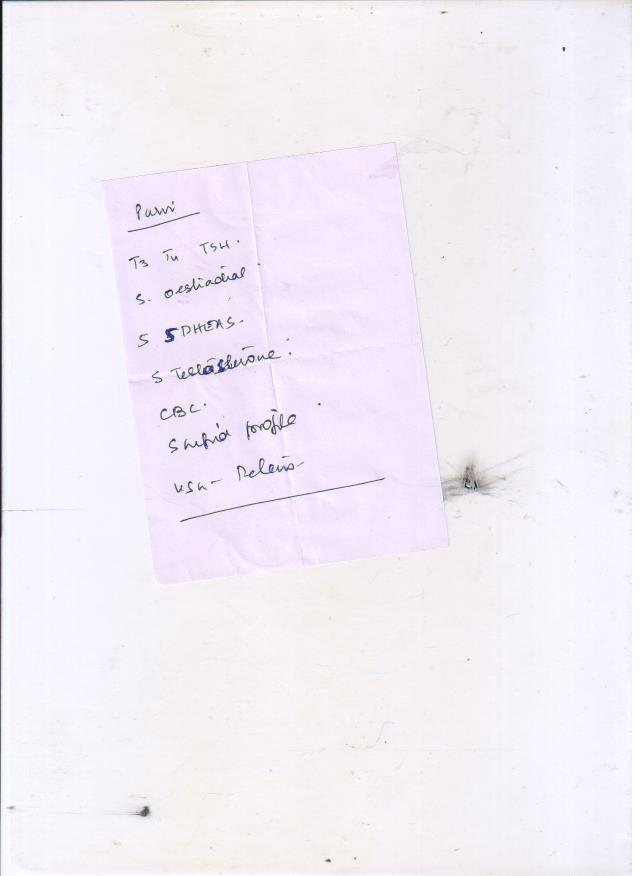 T3 T4 TSH.
S. oestradial.
S SDHEAS.
S Testosterone.
CBC.
S Lipid profile.
USG - Pelvis